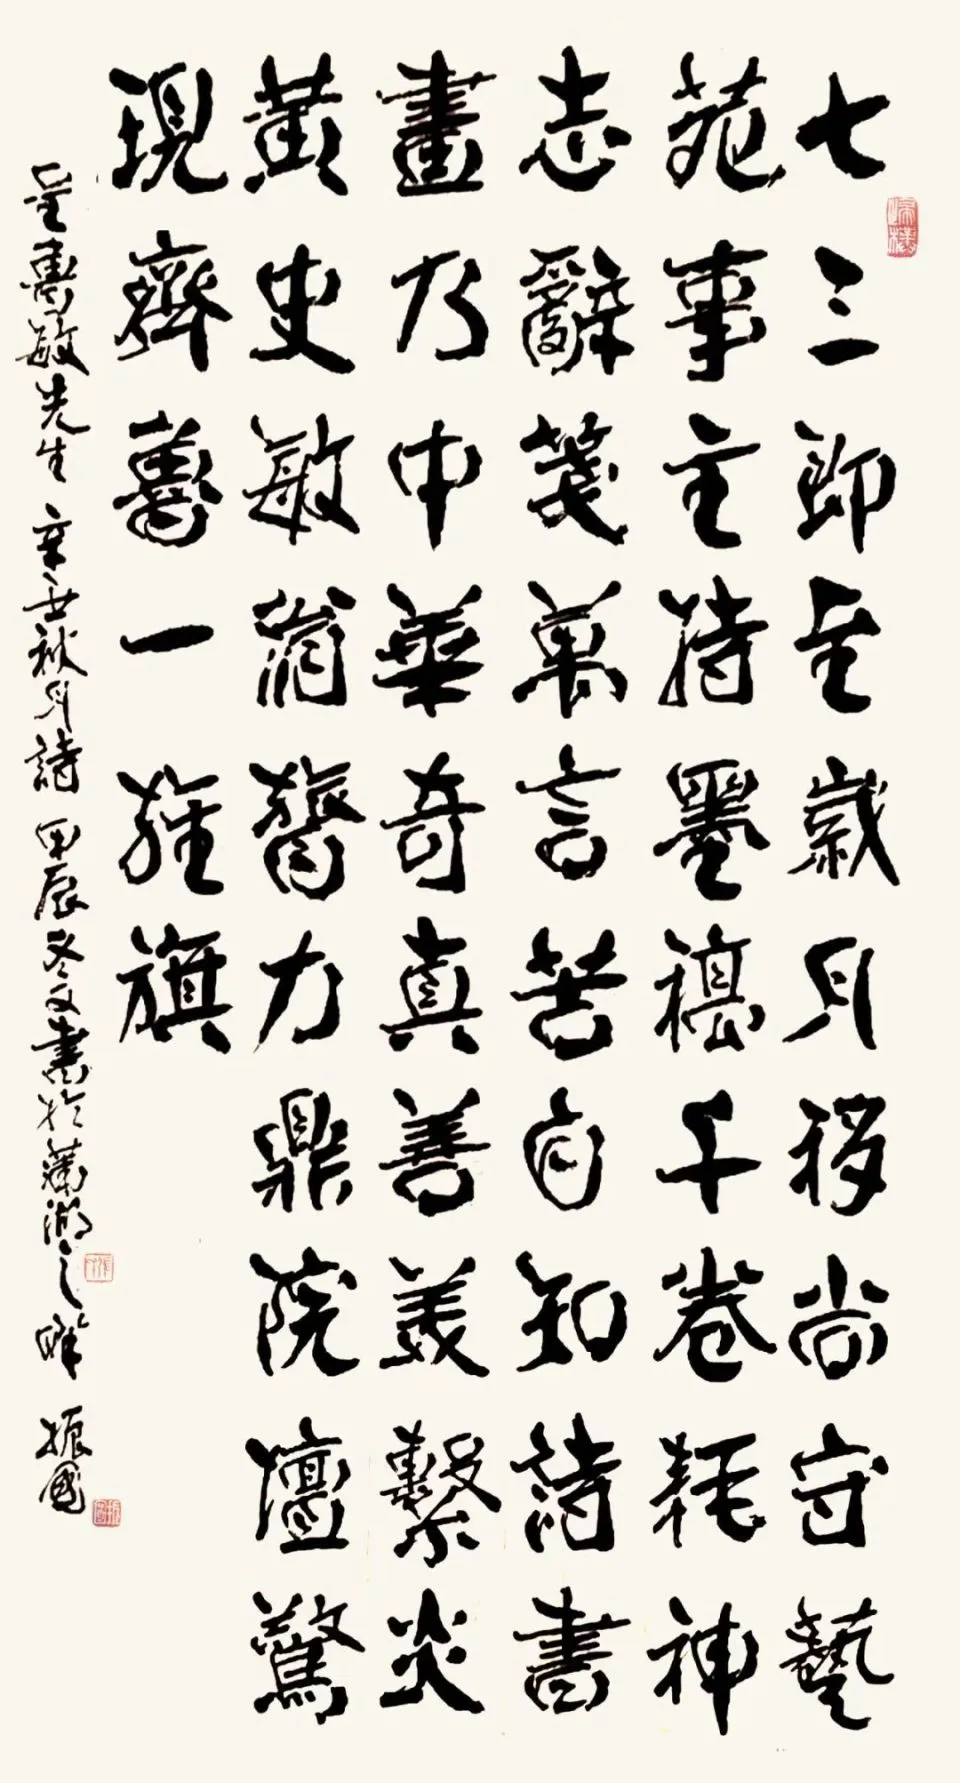 七三即至歲月移尚守藝
苑事主持墨千卷耗神
志辭箋萬言苦自知詩書
畫乃中華奇真善美繫炎
黃史敏翁膂力鼎院壇驚
現齊魯一旌旗
呈壽敏先生 辛丑秋月詩 甲辰冬書於湖之畔 振國